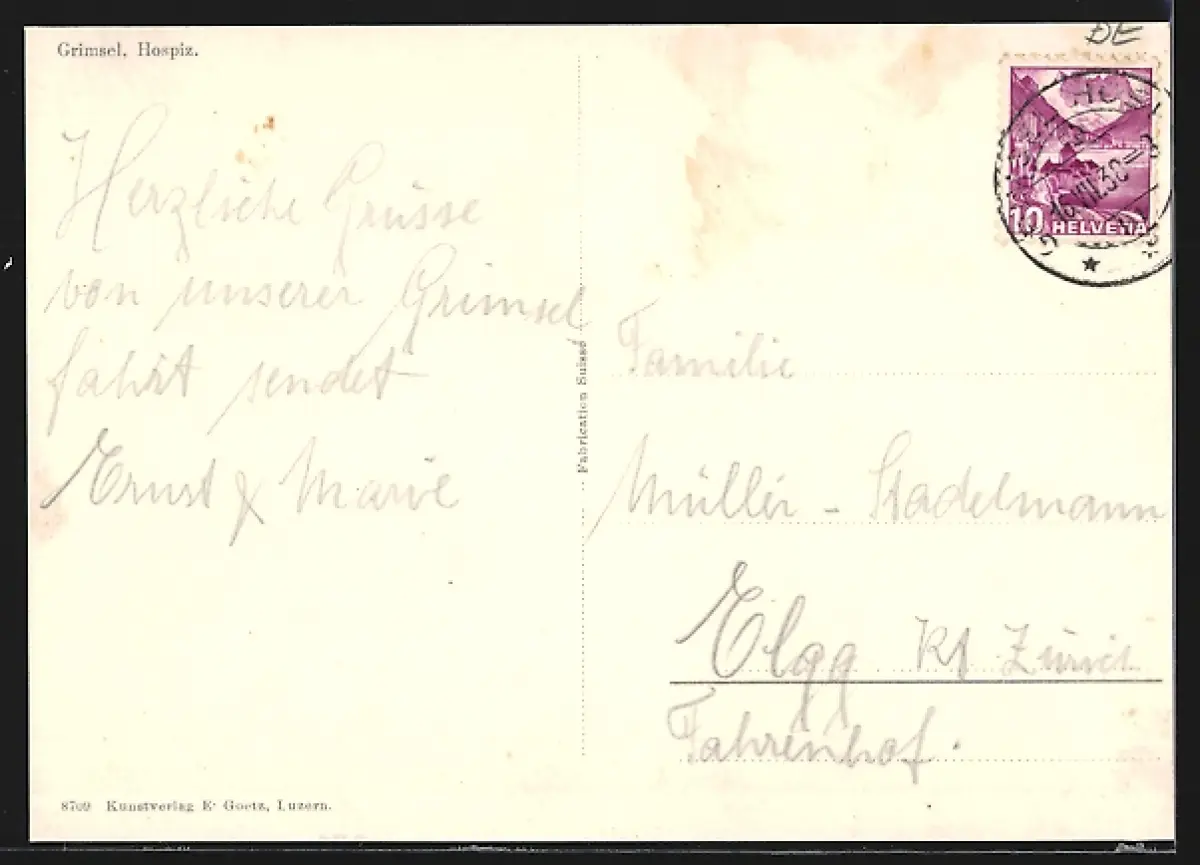 Grimsel, Hospiz.
Herzliche Grüsse
von unserer Grimsel
fahrt sendet
Ernst & Marie
8709 Kunstverlag E. Goetz, Luzern.
Fabrication Suisse
BE
10 HELVETIA
16.VIII.38
Familie
Müller - Stadelmann
Elgg Kt Zürich
Fahrenhof.